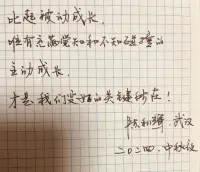 比起被动成长，
唯有充满觉知和不知碰撞的
主动成长，
才是我们变好的关键所在！
武汉
二〇二四.中秋夜